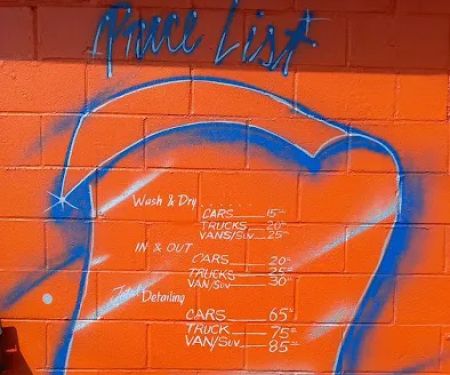 Price List
Wash & Dry.......
CARS____15⁰⁰
TRUCKS___20⁰⁰
VANS/SUV___25⁰⁰
IN & OUT
CARS____20⁰⁰
TRUCKS____25⁰⁰
VAN/SUV____30⁰⁰
Total Detailing
CARS____65⁰⁰
TRUCK____75⁰⁰
VAN/SUV___85⁰⁰